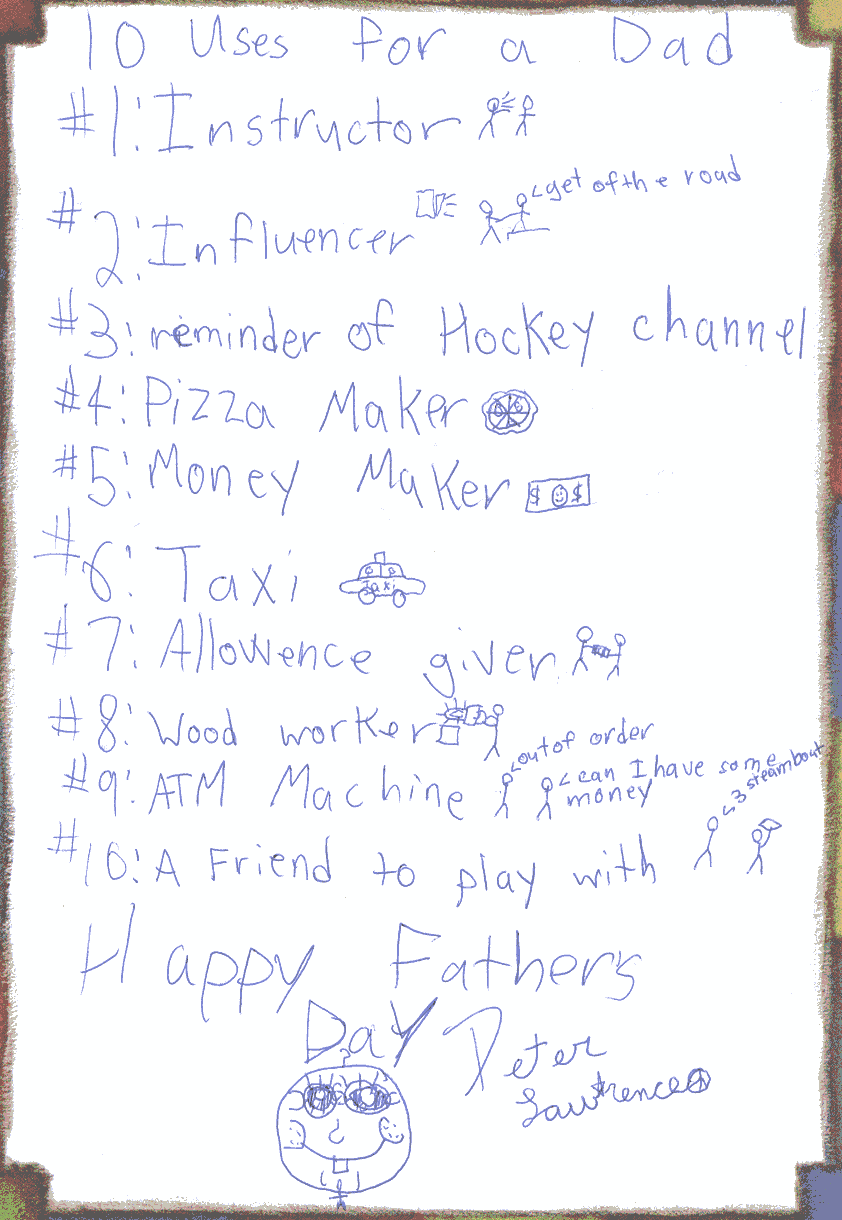 10 Uses for a Dad
#1: Instructor
<get of the road
#2: Influencer
#3: reminder of Hockey channel
#4: Pizza Maker
#5: Money Maker
$ $
#6: Taxi
Taxi
#7: Allowence giver
#8: Wood worker
<out of order
#9: ATM Machine <can I have some money
<3 steambout
#10: A Friend to play with
Happy Father's
Day Peter
Lawrence